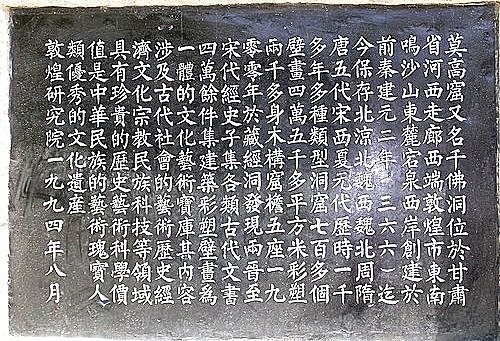 莫高窟又名千佛洞位於甘肅
省河西走廊西端敦煌市東南
鳴沙山東麓宕泉西岸創建於
前秦建元二年（三六六）迄
今保存北涼北魏西魏北周隋
唐五代宋西夏元代歷時一千
多年多種類型洞窟七百多個
壁畫四萬五千多平方米彩塑
兩千多身木構窟檐五座一九
零零年於藏經洞發現兩晉至
宋代經史子集各類古代文書
四萬餘件集建築彩塑壁畫爲
一體的文化藝術寶庫其內容
涉及古代社會的藝術歷史經
濟文化宗教民族科技等領域
具有珍貴的歷史藝術科學價
值是中華民族的藝術瑰寶人
類優秀的文化遺產
敦煌研究院一九九四年八月